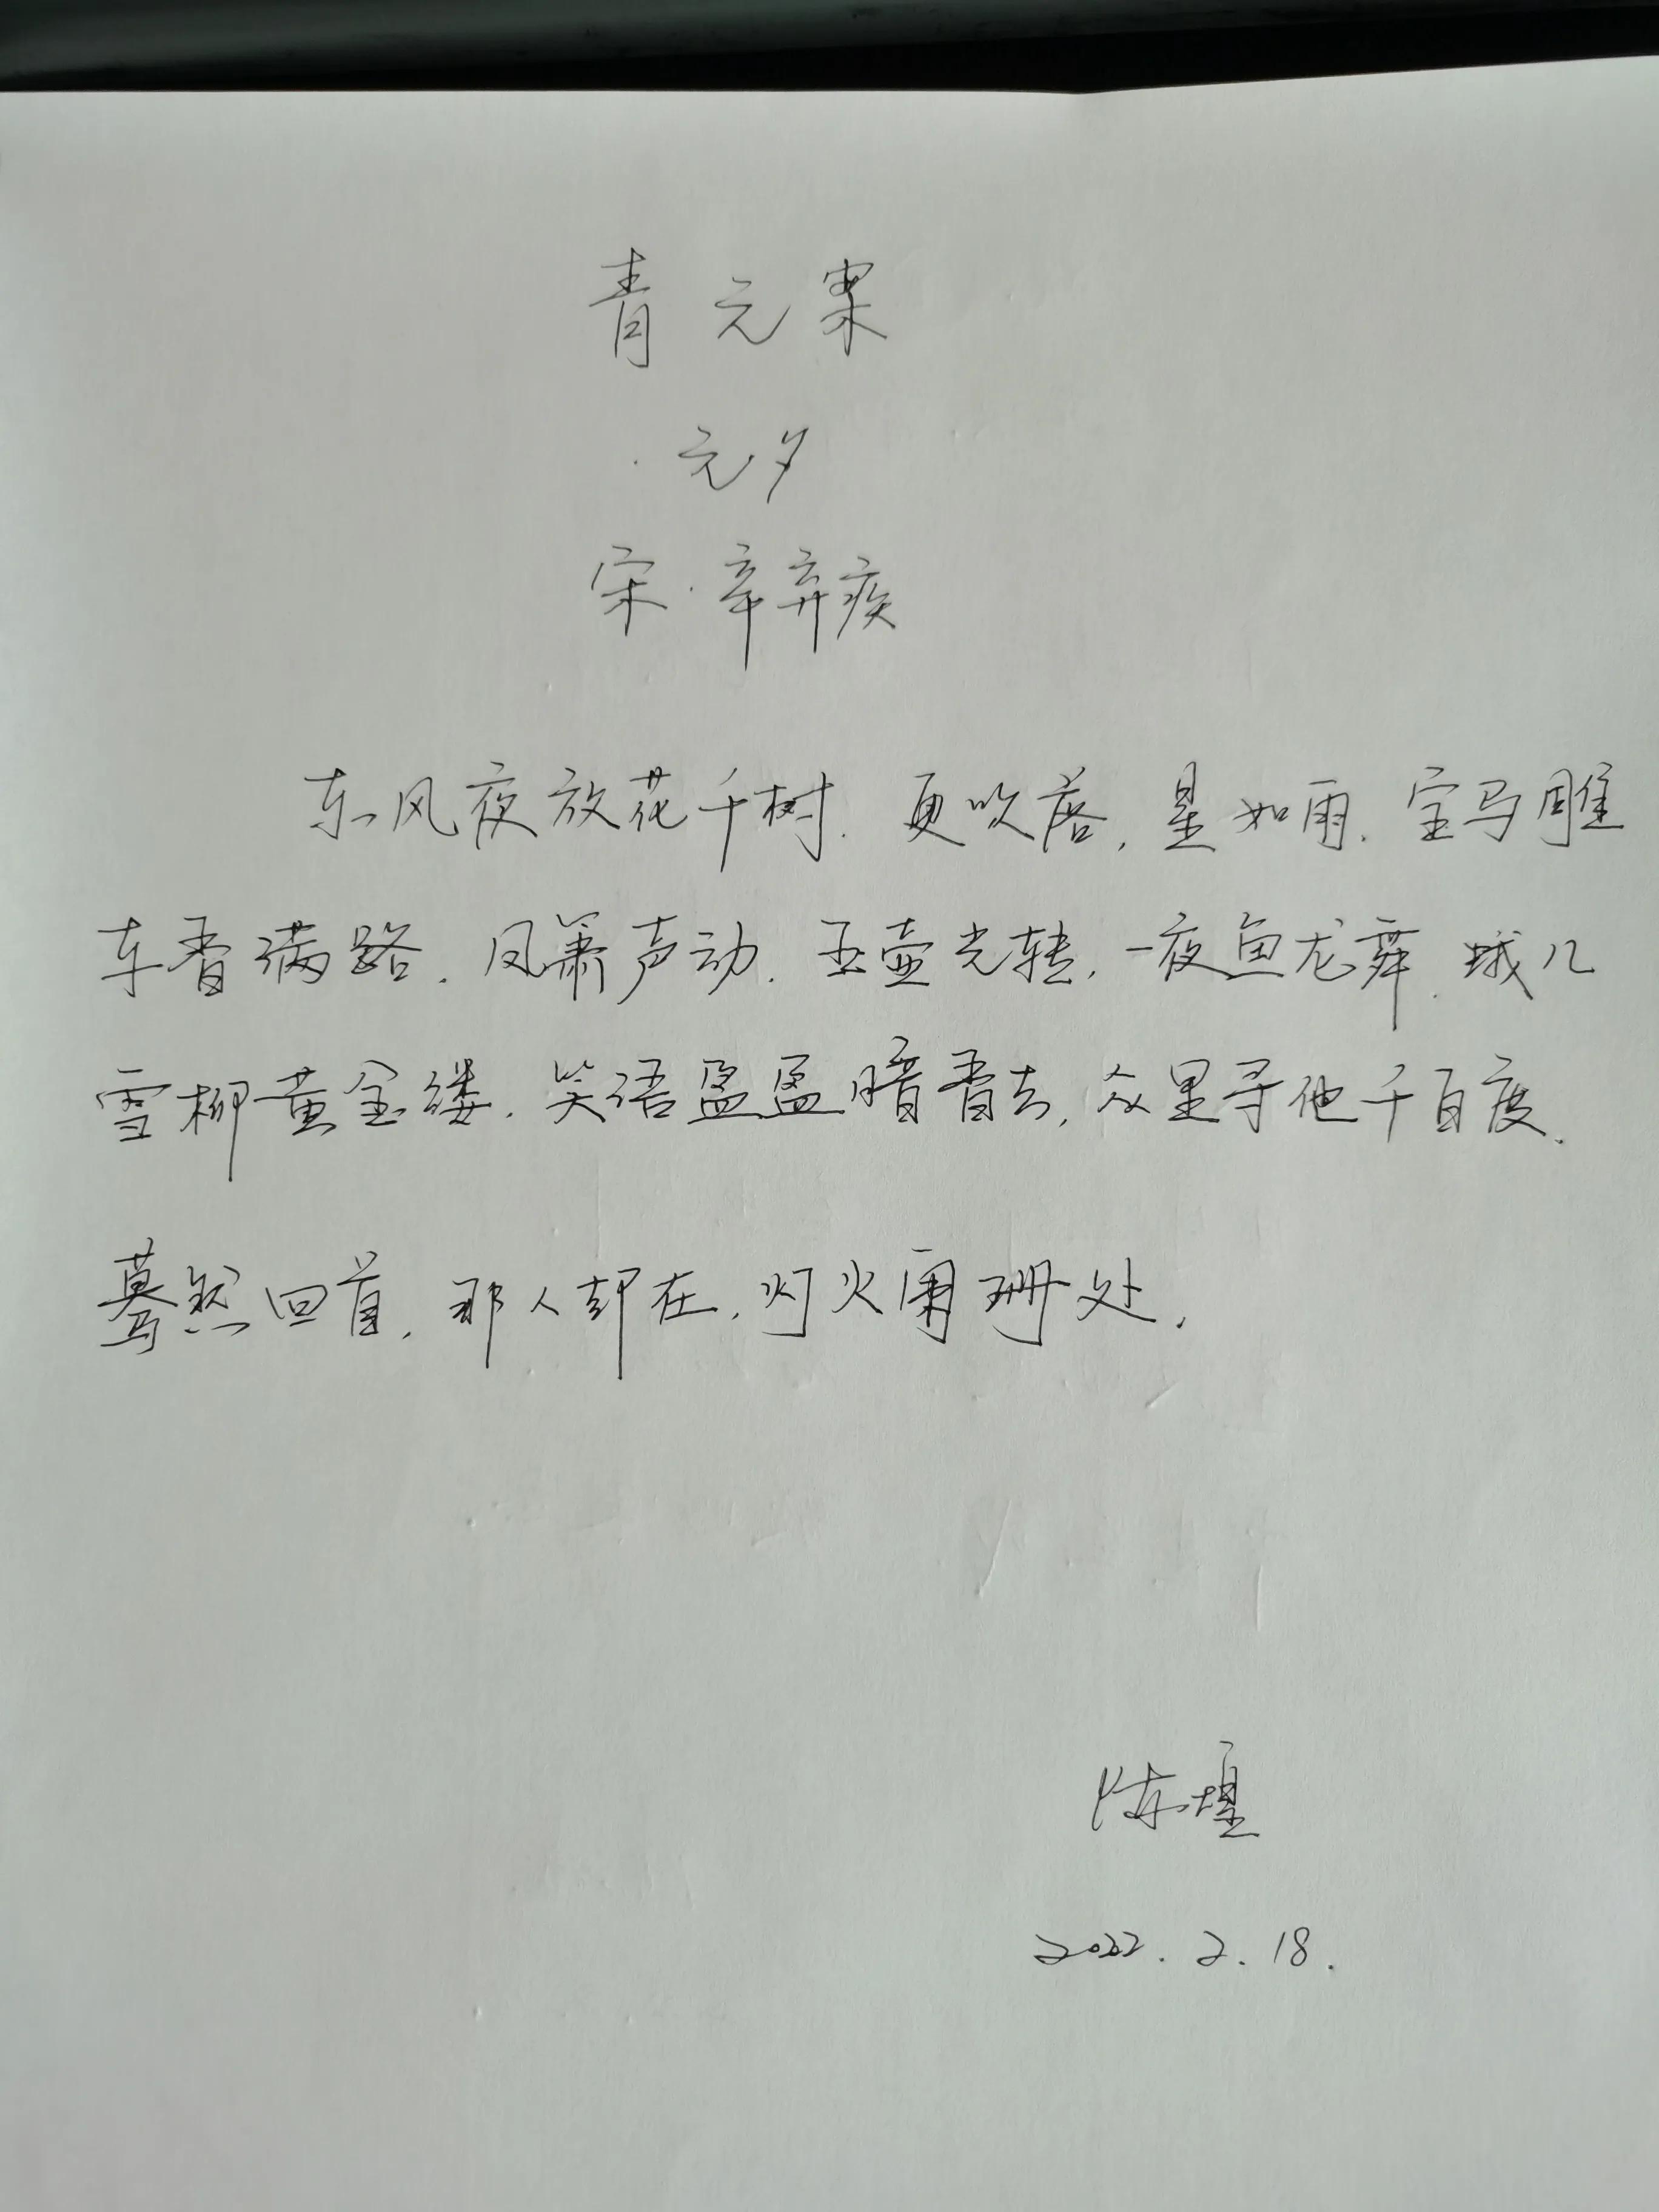 青元案
·元夕
宋·辛弃疾
东风夜放花千树.更吹落,星如雨.宝马雕
车香满路.凤箫声动.玉壶光转,一夜鱼龙舞.蛾儿
雪柳黄金缕.笑语盈盈暗香去,众里寻他千百度.
蓦然回首,那人却在,灯火阑珊处.
陈煌
2022.2.18.